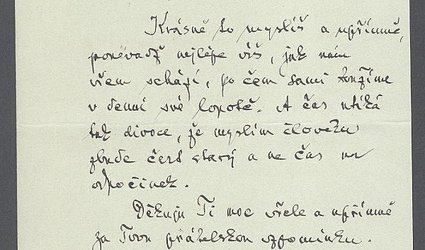 Krásně to myslíš a upřímně,
poněvadž nejlépe víš, jak nám
všem schází, po čem sami toužíme
v denní své lopotě. A čas utíká
tak divoce, že myslím člověku
zbude čert starý a ne čas na
odpočinek.
Děkuju Ti moc vřele a upřímně
za Tvou přátelskou vzpomínku.